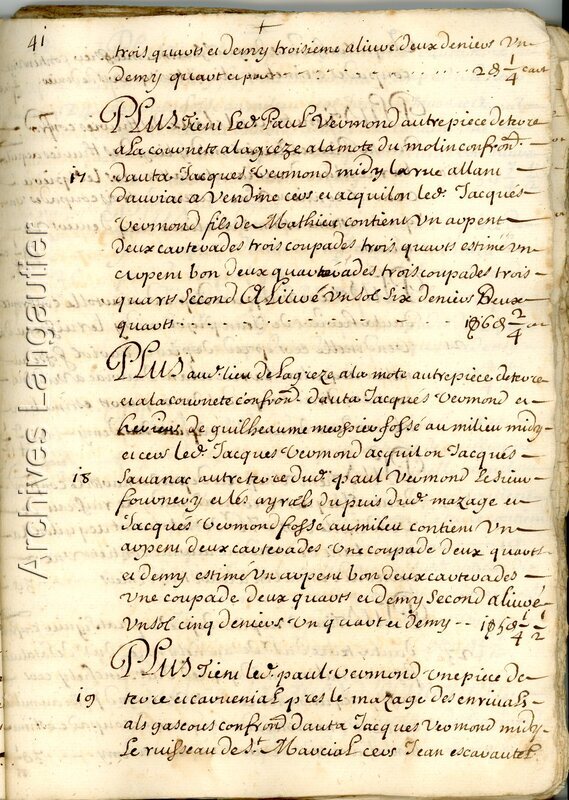 41
trois quarts et demy troisieme aliuré deux deniers Un
demy quart et 2d 1/4
PLUS Tient Led. Paul Vermond autre piece de terre
a La couruete a lagréze a la mote du molin confrond.
dauta Jacques Vermond midy la rue allant
dauriac a Vendine cers et acquilon led. Jacques
Vermond fils de Mathieu contient Un arpent
deux carterades trois coupades trois quarts estimé Un
arpent bon deux quarterades trois coupades trois
quarts second Aliuré Un sol six deniers Deux
quarts 1s 6d 2/4
17
PLUS aud. lieu de Lagreze a la mote autre piece de terre
et a la couruete confrond. dauta Jacques Vermond et
heritiers de guilheaume messier fossé au milieu midy
et cers led. Jacques Vermond acquilon Jacques
Sauanac autre terre dud. paul Vermond Le sieur
fournery et les ayrals du puis dud. mazage et
Jacques Vermond fossé au milieu contient Un
arpent deux carterades Une coupade deux quarts
et demy estimé Un arpent bon deux carterades
Une coupade deux quarts et demy Second aliuré
Un sol cinq deniers Un quart et demy 1s 5d 1/4 1/2
18
PLUS Tient led. paul Vermond Une piece de
terre et carrenial pres le mazage des enriuals
als gascous confrond dauta Jacques Vermond midy
Le ruisseau de St. Marcial cers Jean escarautel
19
Archives Langauffier